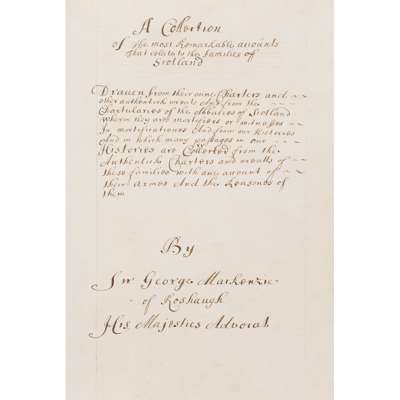 A Collection
of the most Remarkable accounts
that relate to the families of
Scotland
Drawen from their oune Charters and
other authentick
Chartularies of the Abbacies of Scotland
wherin they are mortifiers or witnesses
In mortificationes
and in which many passages in our
Histories are Collected from the
Authentick Charters and
these families with any account of
their Armes And the Reasones of
them
By
Sir George Mackenzie
of Roshaugh
His Majesties Advocat